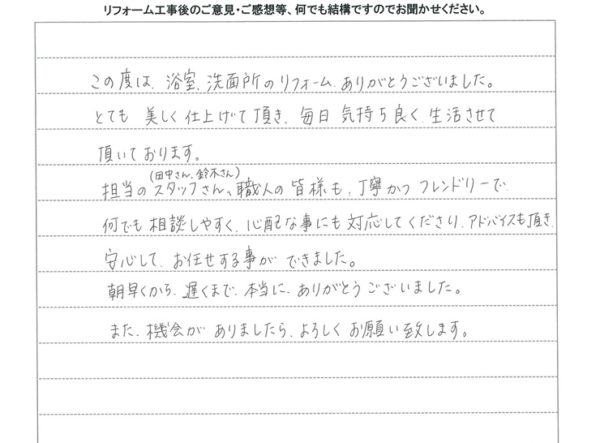 リフォーム工事後のご意見・ご感想等、何でも結構ですのでお聞かせください。
この度は、浴室、洗面所のリフォーム、ありがとうございました。
とても 美しく仕上げて頂き、毎日 気持ち良く 生活させて
頂いております。
(田中さん、鈴木さん)
担当のスタッフさん、職人の皆様も、丁寧かつ フレンドリーで
何でも 相談しやすく、心配な事にも 対応してくださり、アドバイスも頂き、
安心して、お任せする事が できました。
朝早くから、遅くまで、本当に、ありがとうございました。
また、機会が ありましたら、よろしく お願い致します。